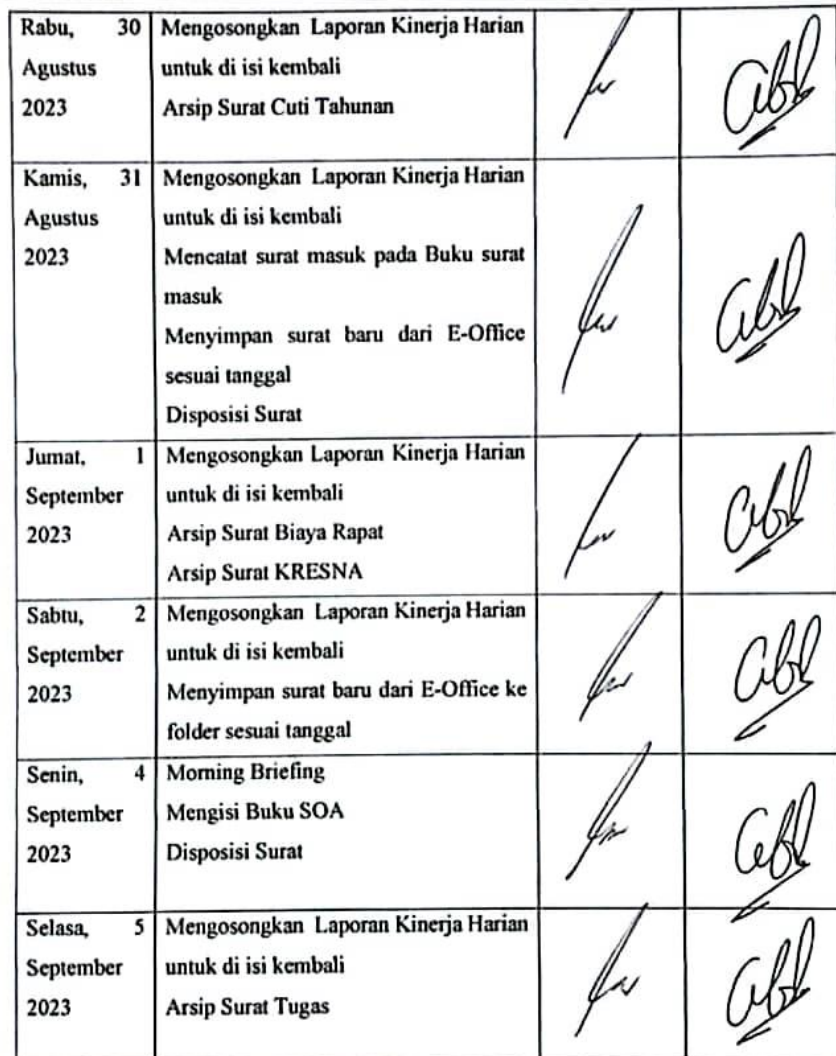 Rabu, 30 Agustus 2023
Mengosongkan Laporan Kinerja Harian
untuk di isi kembali
Arsip Surat Cuti Tahunan
Kamis, 31 Agustus 2023
Mengosongkan Laporan Kinerja Harian
untuk di isi kembali
Mencatat surat masuk pada Buku surat
masuk
Menyimpan surat baru dari E-Office
sesuai tanggal
Disposisi Surat
Jumat, 1 September 2023
Mengosongkan Laporan Kinerja Harian
untuk di isi kembali
Arsip Surat Biaya Rapat
Arsip Surat KRESNA
Sabtu, 2 September 2023
Mengosongkan Laporan Kinerja Harian
untuk di isi kembali
Menyimpan surat baru dari E-Office ke
folder sesuai tanggal
Senin, 4 September 2023
Morning Briefing
Mengisi Buku SOA
Disposisi Surat
Selasa, 5 September 2023
Mengosongkan Laporan Kinerja Harian
untuk di isi kembali
Arsip Surat Tugas